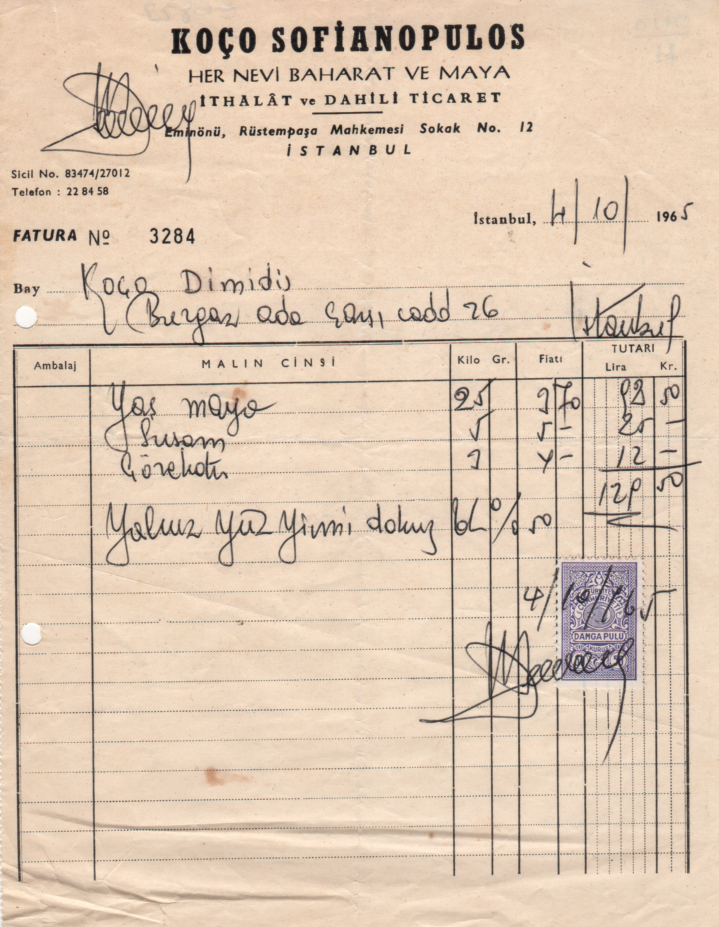 KOÇO SOFİANOPULOS
HER NEVİ BAHARAT VE MAYA
İTHALÂT ve DAHİLİ TİCARET
Eminönü, Rüstempaşa Mahkemesi Sokak No. 12
İSTANBUL
Sicil No. 83474/27012
Telefon : 22 84 58
İstanbul, 4/10/1965
FATURA Nº 3284
Bay Koço Dimidis
(Burgaz ada Çarşı cadd 26 İstanbul
Ambalaj MALIN CİNSİ Kilo Gr. Fiatı TUTARI
Lira Kr.
Yaş maya 25 3 70 92 50
Susam 5 5 - 25 -
Çörekotu 3 4 - 12 -
129 50
Yalnız yüz yirmi dokuz 50
4/10/965
DAMGA PULU